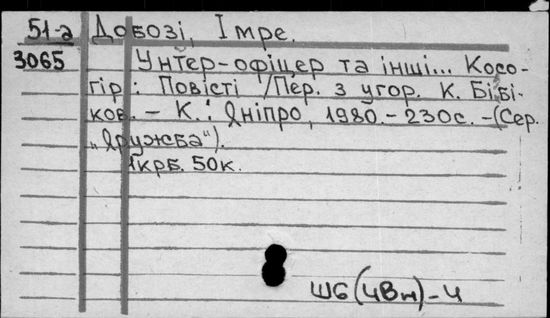 51-а Добозі, Імре.
3065 Унтер-офіцер та інші... Косо-
гір: Повісті /Пер. з угор. К. Бібі-
ков. - К.: Дніпро, 1980. - 230с. - (Сер.
„Дружба").
1крб. 50к.
Ш6(4Вн)-4